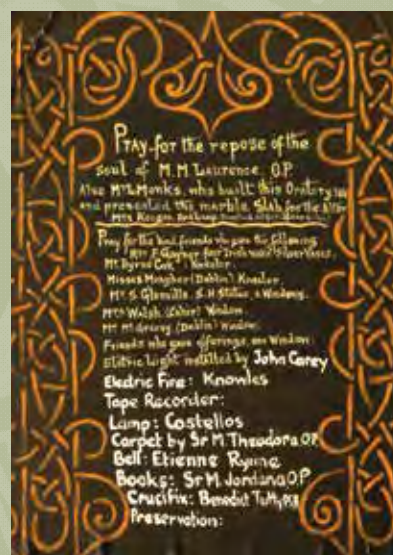 Pray for the repose of the
soul of M.M. Laurence. O.P.
Also Mrs Monks, who built this Oratory
and presented this marble Slab for the Altar
Mrs
Pray for the kind friends who gave the following
Mrs F. Gaynor four Irish Silver Vases.
Mr Byrne Kneeler.
Misses Meagher (Dublin) Kneeler.
Mr S. Glanville. S.H. Statue, & Windows.
Mrs Walsh Window.
Mr (Dublin) Window.
Friends who gave offerings, one Window.
Eletric Light installed by John Carey
Electric Fire: Knowles
Tape Recorder:
Lamp: Costellos
Carpet by Sr M. Theodora O.P.
Bell: Etienne Rynne
Books: Sr M. Jordana O.P
Crucifix: Benedict Tutty
Preservation: